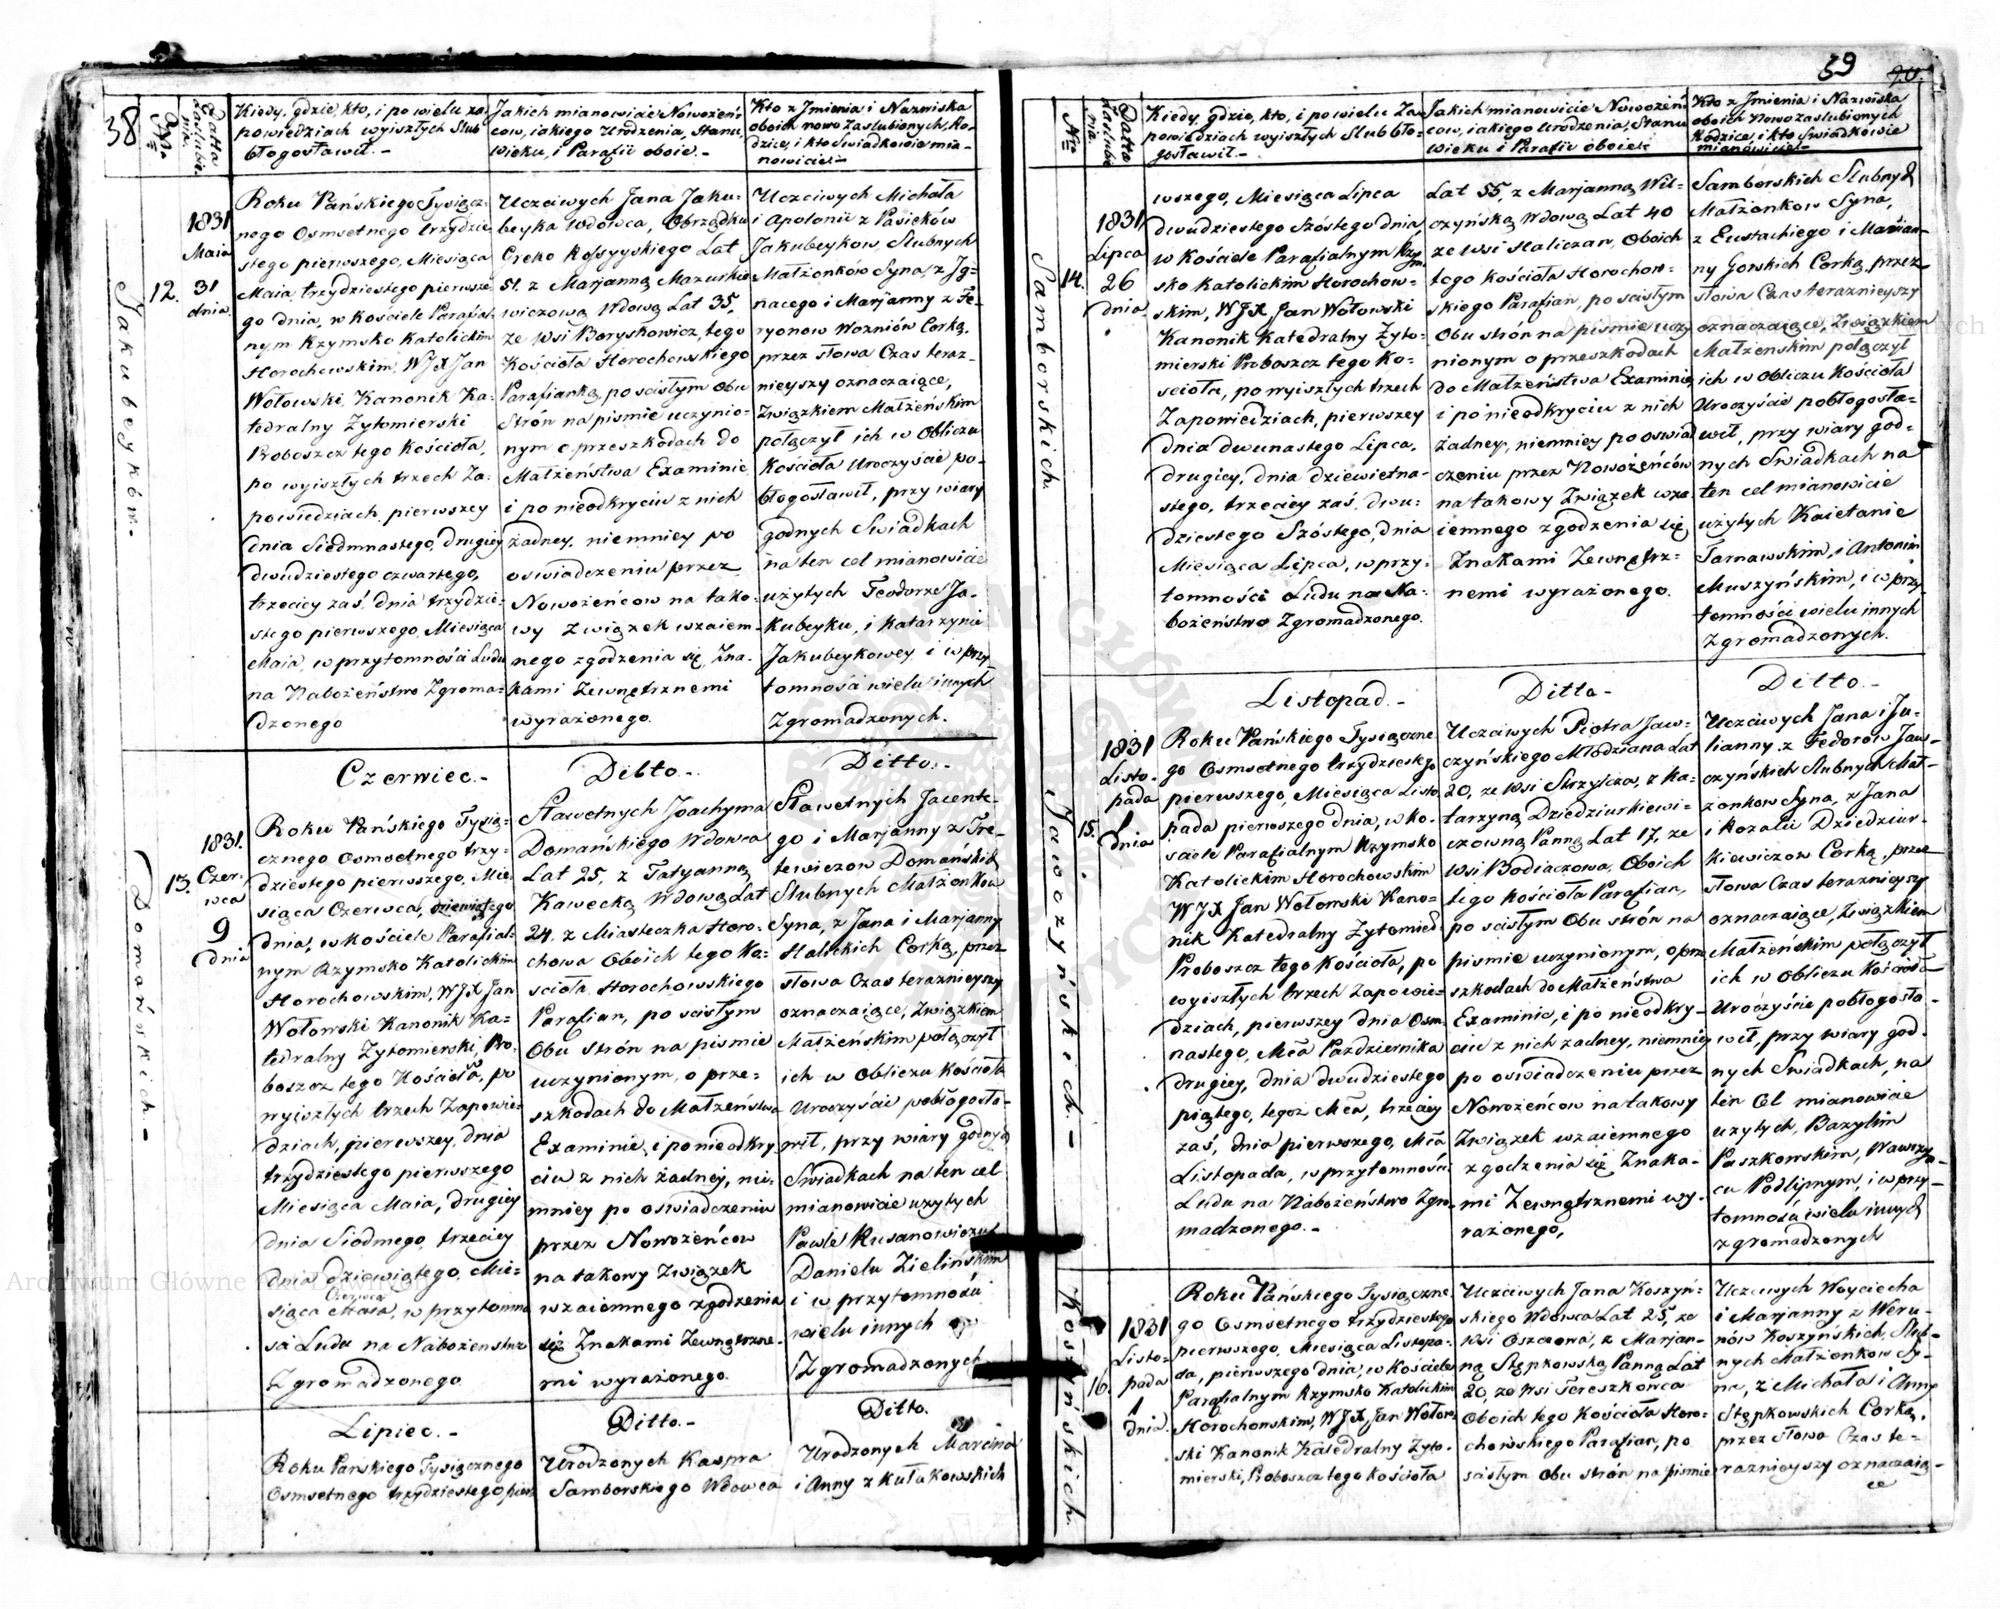 38
Nro
Datta zaslubienia.
Kiedy, gdzie, kto, i po wielu za-
powiedziach wyiszłych Slub
błogosławił.-
Jakich mianowicie Nowożeń-
cow, iakiego Urodzenia, Stanu,
Wieku, i Parafii oboie.-
Kto z Imienia i Nazwiska
oboich nowo Zaslubionych, Ro-
dzice, i kto Swiadkowie mia-
nowicie:-
Jakubeykow.-
12.
1831
Maia
31
dnia
Roku Pańskiego Tysiącz-
nego Osmsetnego trzydzie-
stego pierwszego, Miesiąca
Maia, trzydziestego pierwsze-
go dnia, w Kościele Parafial-
nym Rzymsko Katolickim
Horochowskim, WJX Jan
Wołowski, Kanonik Ka-
tedralny Zytomierski
Proboszcz tego Kościoła,
po wyiszłych trzech Za-
powiedziach, pierwszey
dnia Siedmnastego, drugiey
dwudziestego czwartego,
trzeciey zaś, dnia trzydzie-
stego pierwszego, Miesiąca
Maia, w przytomności Ludu
na Nabożeństwo Zgroma-
dzonego
Uczciwych Jana Jaku-
beyka Wdowca, Obrządku
Greko Rossyyskiego Lat
51. z Marjanną Mazurkie-
wiczową Wdową Lat 35,
ze Wsi Boryskowicz, tego
Kościoła Horochowskiego
Parafianką, po scisłym Obu
Strón na pismie uczynio-
nym o przeszkodach do
Małżeństwa Examinie
i po nieodkryciu z nich
żadney, niemniey po
oswiadczeniu przez
Nowożeńcow na tako-
wy Związek wzaiem-
nego zgodzenia się, Zna-
kami Zewnętrznemi
wyrażonego.
Uczciwych Michała
i Apolonii z Pasieków
Jakubeykow, Slubnych
Małżonków Syna, z Ig-
nacego i Marjanny z Fe-
ryonow Wozniów Corką,
przez słowa Czas teraz-
nieyszy oznaczaiące,
Związkiem Małżeńskim
połączył ich w Obliczu
Kościoła Uroczyście po-
błogosławił, przy wiary
godnych Swiadkach
na ten cel mianowicie
użytych Teodorze Ja-
kubeyku, i Katarzynie
Jakubeykowey i w przy-
tomności wielu innych
Zgromadzonych.
Czerwiec.-
Ditto.-
Ditto.-
Domańskich.-
13.
1831.
Czer-
wca
9
dnia
Roku Pańskiego Tysią-
cznego Osmsetnego trzy-
dziestego pierwszego, Mie-
siąca Czerwca, dziewiątego
dnia, w Kościele Parafial-
nym Rzymsko Katolickim
Horochowskim, WJX Jan
Wołowski Kanonik Ka-
tedralny Zytomierski, Pro-
boszcz tego Kościoła, po
wyiszłych trzech Zapowie-
dziach, pierwszey, dnia
trzydziestego pierwszego
Miesiąca Maia, drugiey
dnia Siodmego, trzeciey
dnia dziewiątego, Mie-
Czerwca
siąca Maia, w przytomno-
sci Ludu na Nabożeństwo
Zgromadzonego
Sławetnych Joachyma
Domańskiego Wdowca
Lat 25, z Tatyanną
Kawecką Wdową Lat
24. z Miasteczka Horo-
chowa Oboich tego Ko-
scioła Horochowskiego
Parafian, po scisłym
Obu Strón na pismie
uczynionym, o prze-
szkodach do Małżeństwa
Examinie, i po nieodkry-
ciu z nich żadney, nie-
mniey po oswiadczeniu
przez Nowożeńcow
na takowy Związek
wzaiemnego zgodzenia
się Znakami Zewnętrzne-
mi wyrażonego.
Sławetnych Jacente-
go i Marjanny z Tre-
tewiczow Domańskich
Slubnych Małżonkow
Syna, z Jana i Marjanny
Halickich Corką, przez
słowa Czas teraznieyszy
oznaczaiące, Związkiem
Małżeńskim połączył
ich w Obliczu Kościoła
Uroczyście pobłogosła-
wił, przy wiary godnych
Swiadkach na ten cel
mianowicie użytych
Pawle Rusanowiczu
Danielu Zielińskim
i w przytomności
wielu innych
Zgromadzonych
Lipiec.-
Ditto.-
Ditto.
Roku Pańskiego Tysiącznego
Osmsetnego trzydziestego pierw-
Urodzonych Kaspra
Samborskiego Wdowca
Urodzonych Marcina
i Anny z Kułakowskich
39
Nro
Datta zaslubienia.
Kiedy, gdzie, kto, i po wielu Za-
powiedziach wyiszłych Slub bło-
gosławił.-
Jakich mianowicie Nowożeń-
cow, iakiego Urodzenia, Stanu
Wieku i Parafii oboie:
Kto z Imienia i Nazwiska
oboich Nowo zaslubionych
Rodzice, i kto Swiadkowie
mianowicie.-
Samborskich.
14.
1831
Lipca
26
dnia
wszego, Miesiąca Lipca
dwudziestego Szóstego dnia,
w Kościele Parafialnym Rzym-
sko Katolickim Horochow-
skim, WJX Jan Wołowski
Kanonik Katedralny Zyto-
mierski Proboszcz tego Ko-
scioła, po wyiszłych trzech
Zapowiedziach, pierwszey
dnia dwunastego Lipca,
drugiey, dnia dziewietna-
stego, trzeciey zaś, dwu-
dziestego Szóstego, dnia
Miesiąca Lipca, w przy-
tomności Ludu na Na-
bożeństwo Zgromadzonego.
Lat 55, z Marjanną Wil-
czyńską Wdową Lat 40
ze Wsi Haliczan, Oboich
tego Kościoła Horochow-
skiego Parafian, po scisłym
Obu strón na pismie uczy-
nionym o przeszkodach
do Małżeństwa Examinie,
i po nieodkryciu z nich
żadney, niemniey po oswiad-
czeniu przez Nowożeńców
na takowy Związek wza-
iemnego zgodzenia się
Znakami Zewnętrz-
nemi wyrażonego.
Samborskich Slubnych
Małżonkow Syna,
z Eustachiego i Marian-
ny Gorskich Corką, przez
słowa Czas teraznieyszy
oznaczaiące, Związkiem
Małżeńskim połączył
ich w Obliczu Kościoła
Uroczyście pobłogosła-
wił, przy wiary god-
nych Swiadkach na
ten cel mianowicie
użytych Kaietanie
Tarnawskim, i Antonim
Muszyńskim, i w przy-
tomności wielu innych
Zgromadzonych.
Listopad.-
Ditto-
Ditto.-
Jawoczyńskich.-
15.
1831
Listo-
pada
1
dnia
Roku Pańskiego Tysiączne-
go Osmsetnego trzydziestego
pierwszego, Miesiąca Listo-
pada pierwszego dnia, w Ko-
sciele Parafialnym Rzymsko
Katolickim Horochowskim
WJX Jan Wołowski Kano-
nik Katedralny Zytomier-
Proboszcz tego Kościoła, po
wyiszłych trzech Zapowie-
dziach, pierwszey dnia Osm-
nastego, Mca Pazdziernika
drugiey, dnia dwudziestego
piątego, tegoż Mca, trzeciey
zaś, dnia pierwszego, Mca
Listopada, w przytomności
Ludu na Nabożeństwo Zgro-
madzonego.-
Uczciwych Piotra Jaw-
czyńskiego Młodziana Lat
20, ze Wsi Strzylcza, z Ka-
tarzyną Dziedziurkiewi-
czowną Panną Lat 17, ze
Wsi Bodiaczowa, Oboich
tego Kościoła Parafian,
po scisłym Obu strón na
pismie uczynionym, o prze-
szkodach do Małżeństwa
Examinie, i po nieodkry-
ciu z nich żadney, niemniey
po oswiadczeniu przez
Nowożeńcow na takowy
Związek wzaiemnego
zgodzenia się Znaka-
mi Zewnętrznemi wy-
rażonego,
Uczciwych Jana i Ju-
lianny z Fedorow Jaw-
czyńskich Slubnych Mał-
żonkow Syna, z Jana
i Rozalii Dziedziur-
kiewiczow Corką, przez
słowa Czas teraznieyszy
oznaczaiące, Związkiem
Małżeńskim połączył
ich w Obliczu Kościoła
Uroczyście pobłogosła-
wił, przy wiary god-
nych Swiadkach, na
ten Cel mianowicie
użytych, Bazylim
Paszkowskim, Wawrzy-
cu Podlipnym, i w przy-
tomności wielu innych
zgromadzonych
Koszyńskich.
16.
1831
Listo-
pada
1
dnia
Roku Pańskiego Tysiączne-
go Osmsetnego trzydziestego
pierwszego, Miesiąca Listopa-
da, pierwszego dnia, w Kościele
Parafialnym Rzymsko Katolickim
Horochowskim, WJX Jan Wołow-
ski Kanonik Katedralny Zyto-
mierski, Proboszcz tego Kościoła
Uczciwych Jana Koszyń-
skiego Wdowca Lat 25, ze
Wsi Oszczowa, z Marjan-
ną Stępkowską Panną Lat
20, ze Wsi Tereszkowca
Oboich tego Kościoła Horo-
chowskiego Parafian, po
scisłym Obu strón na pismie
Uczciwych Woyciecha
i Marjanny z Weru-
nów Koszyńskich, Slub-
nych Małżonkow Sy-
na, z Michała i Anny
Stępkowskich Corką,
przez słowa Czas te-
raznieyszy oznaczaią-
ce
Archiwum Główne